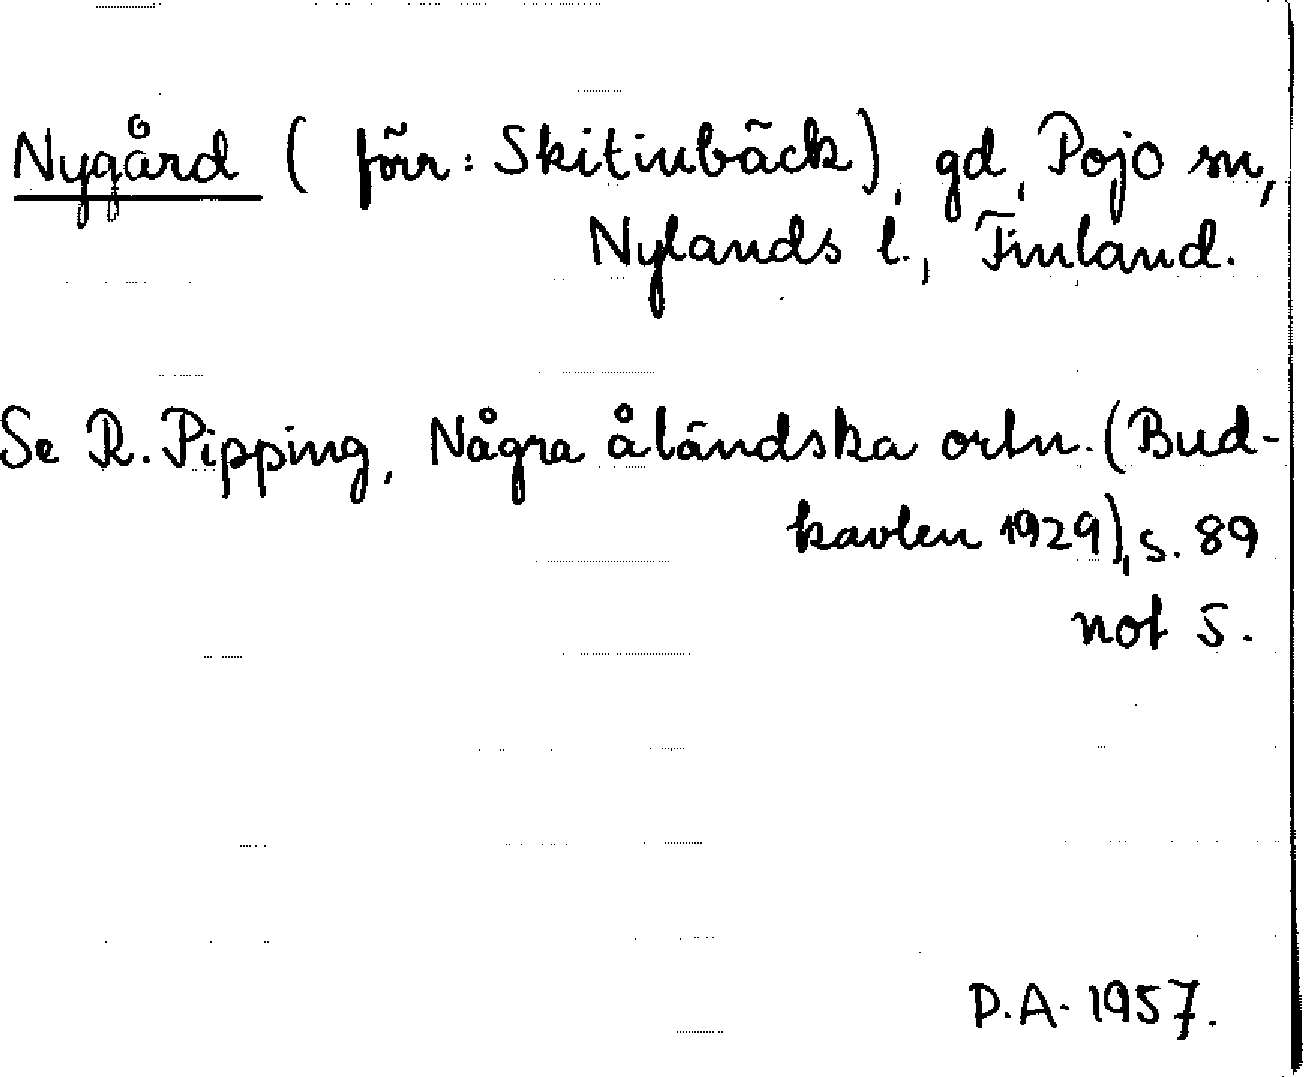 Nygård (förr: Skitinbäck), gd, Pojo sn,
Nylands l., Finland.
Se R. Pipping, Några åländska ortn. (Bud-
kavlen 1929), s. 89
not 5.
P.A. 1957.